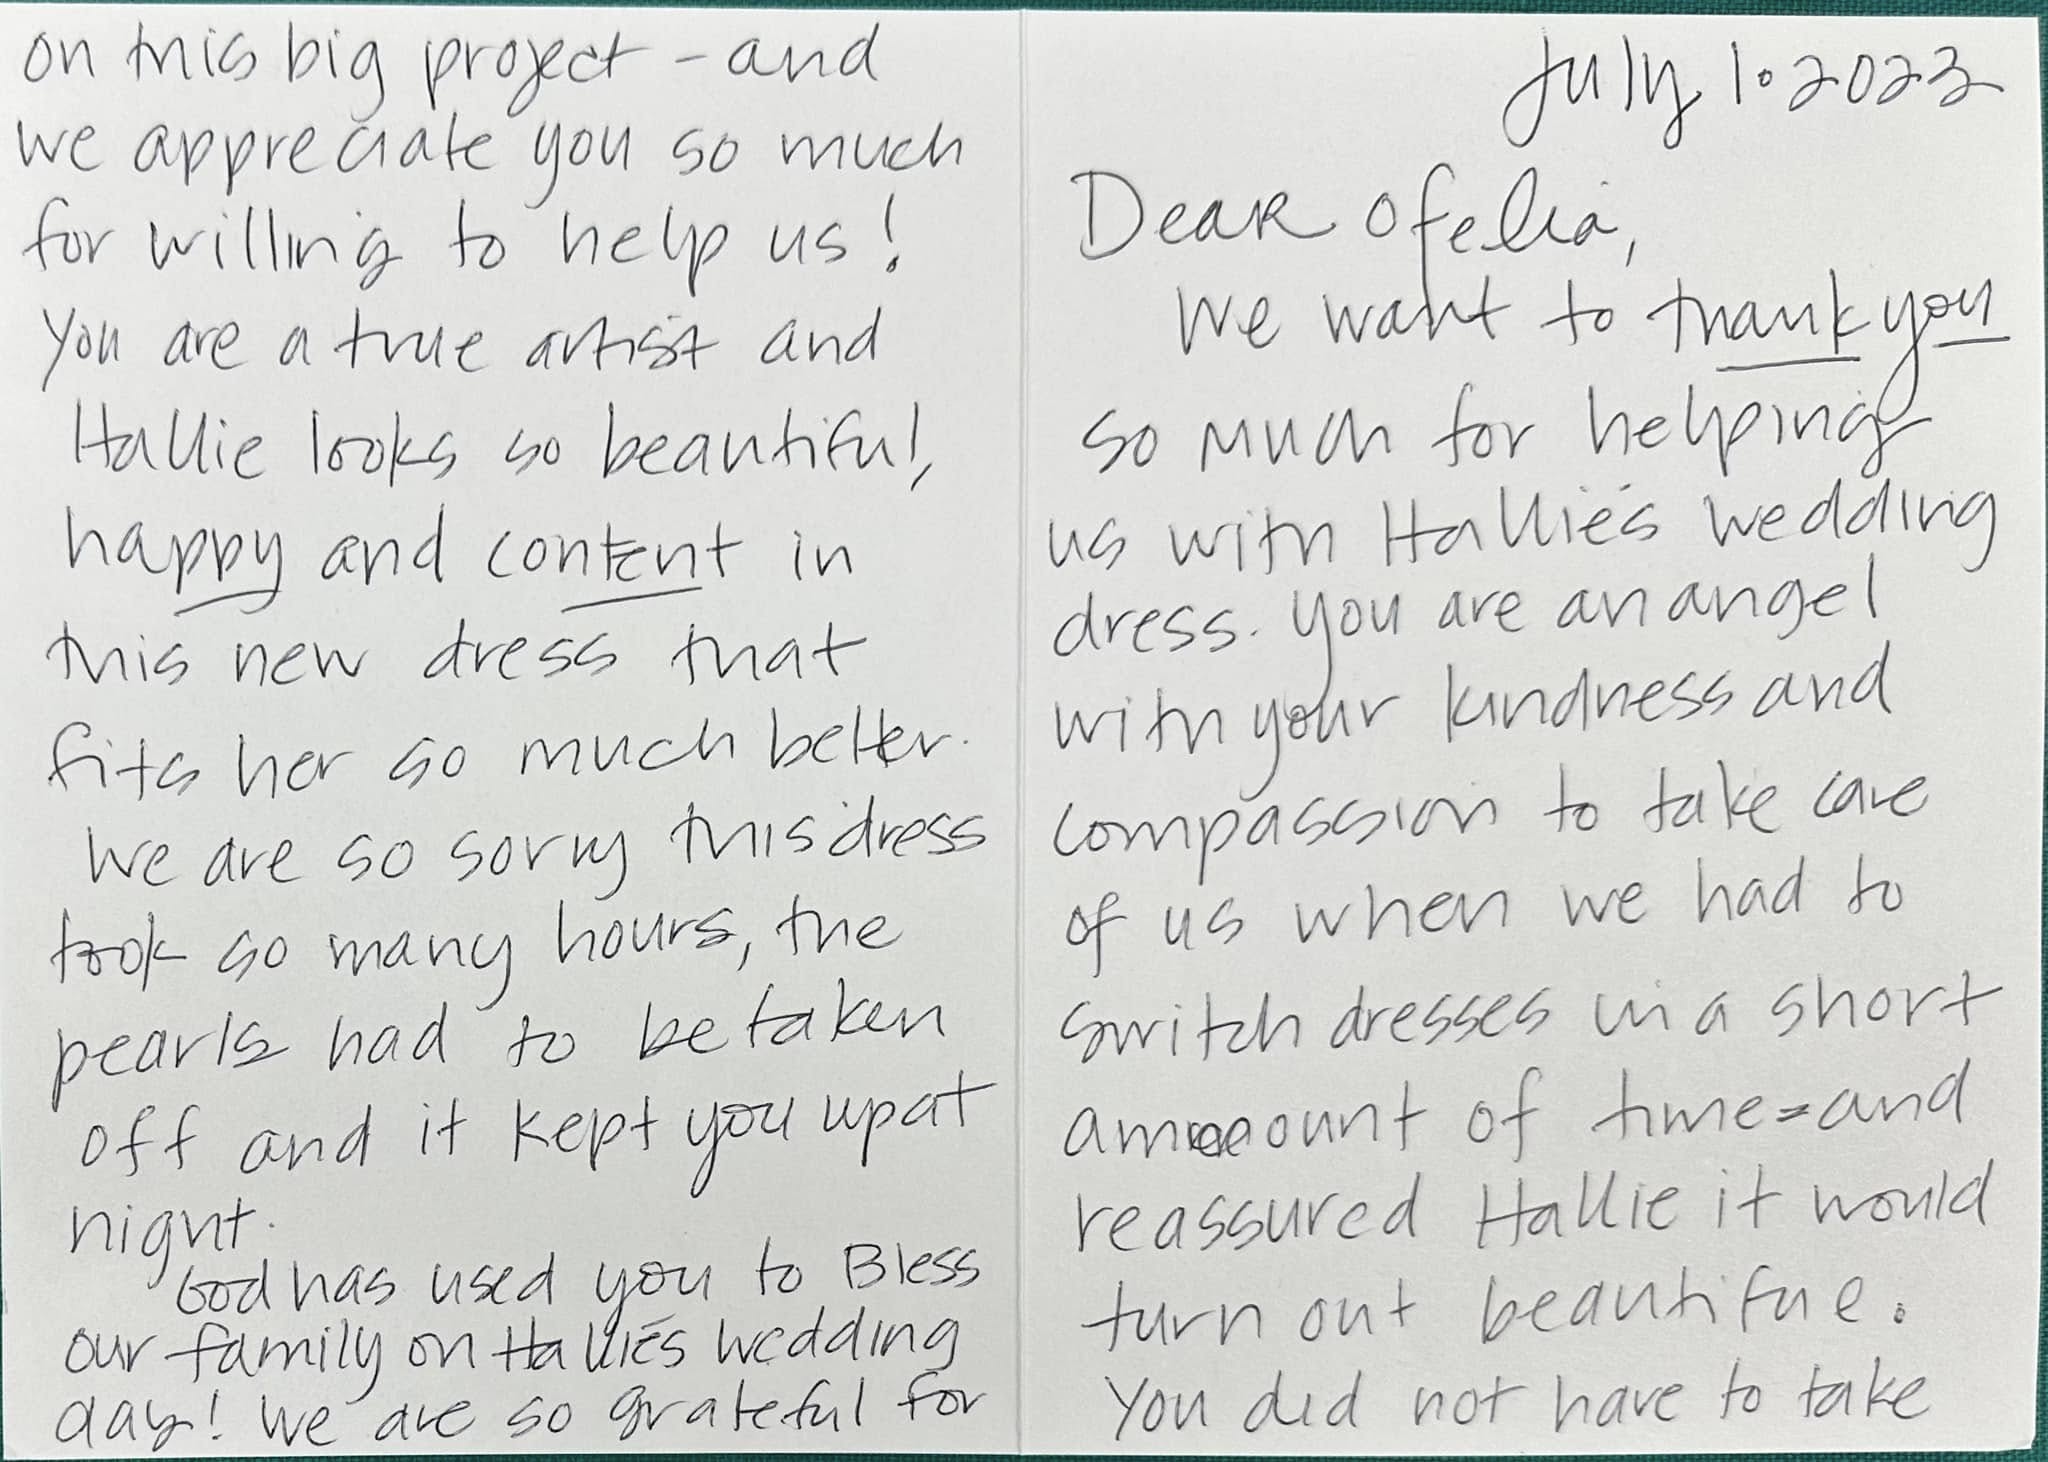 July 1. 2023
Dear Ofelia,
We want to thank you
so much for helping
us with Hallie's wedding
dress. You are an angel
with your kindness and
compassion to take care
of us when we had to
switch dresses in a short
amount of time - and
reassured Hallie it would
turn out beautiful.
You did not have to take
on this big project - and
we appreciate you so much
for willing to help us!
You are a true artist and
Hallie looks so beautiful,
happy and content in
this new dress that
fits her so much better.
We are so sorry this dress
took so many hours, the
pearls had to be taken
off and it kept you up at
night.
God has used you to Bless
our family on Hallie's wedding
day! We are so grateful for